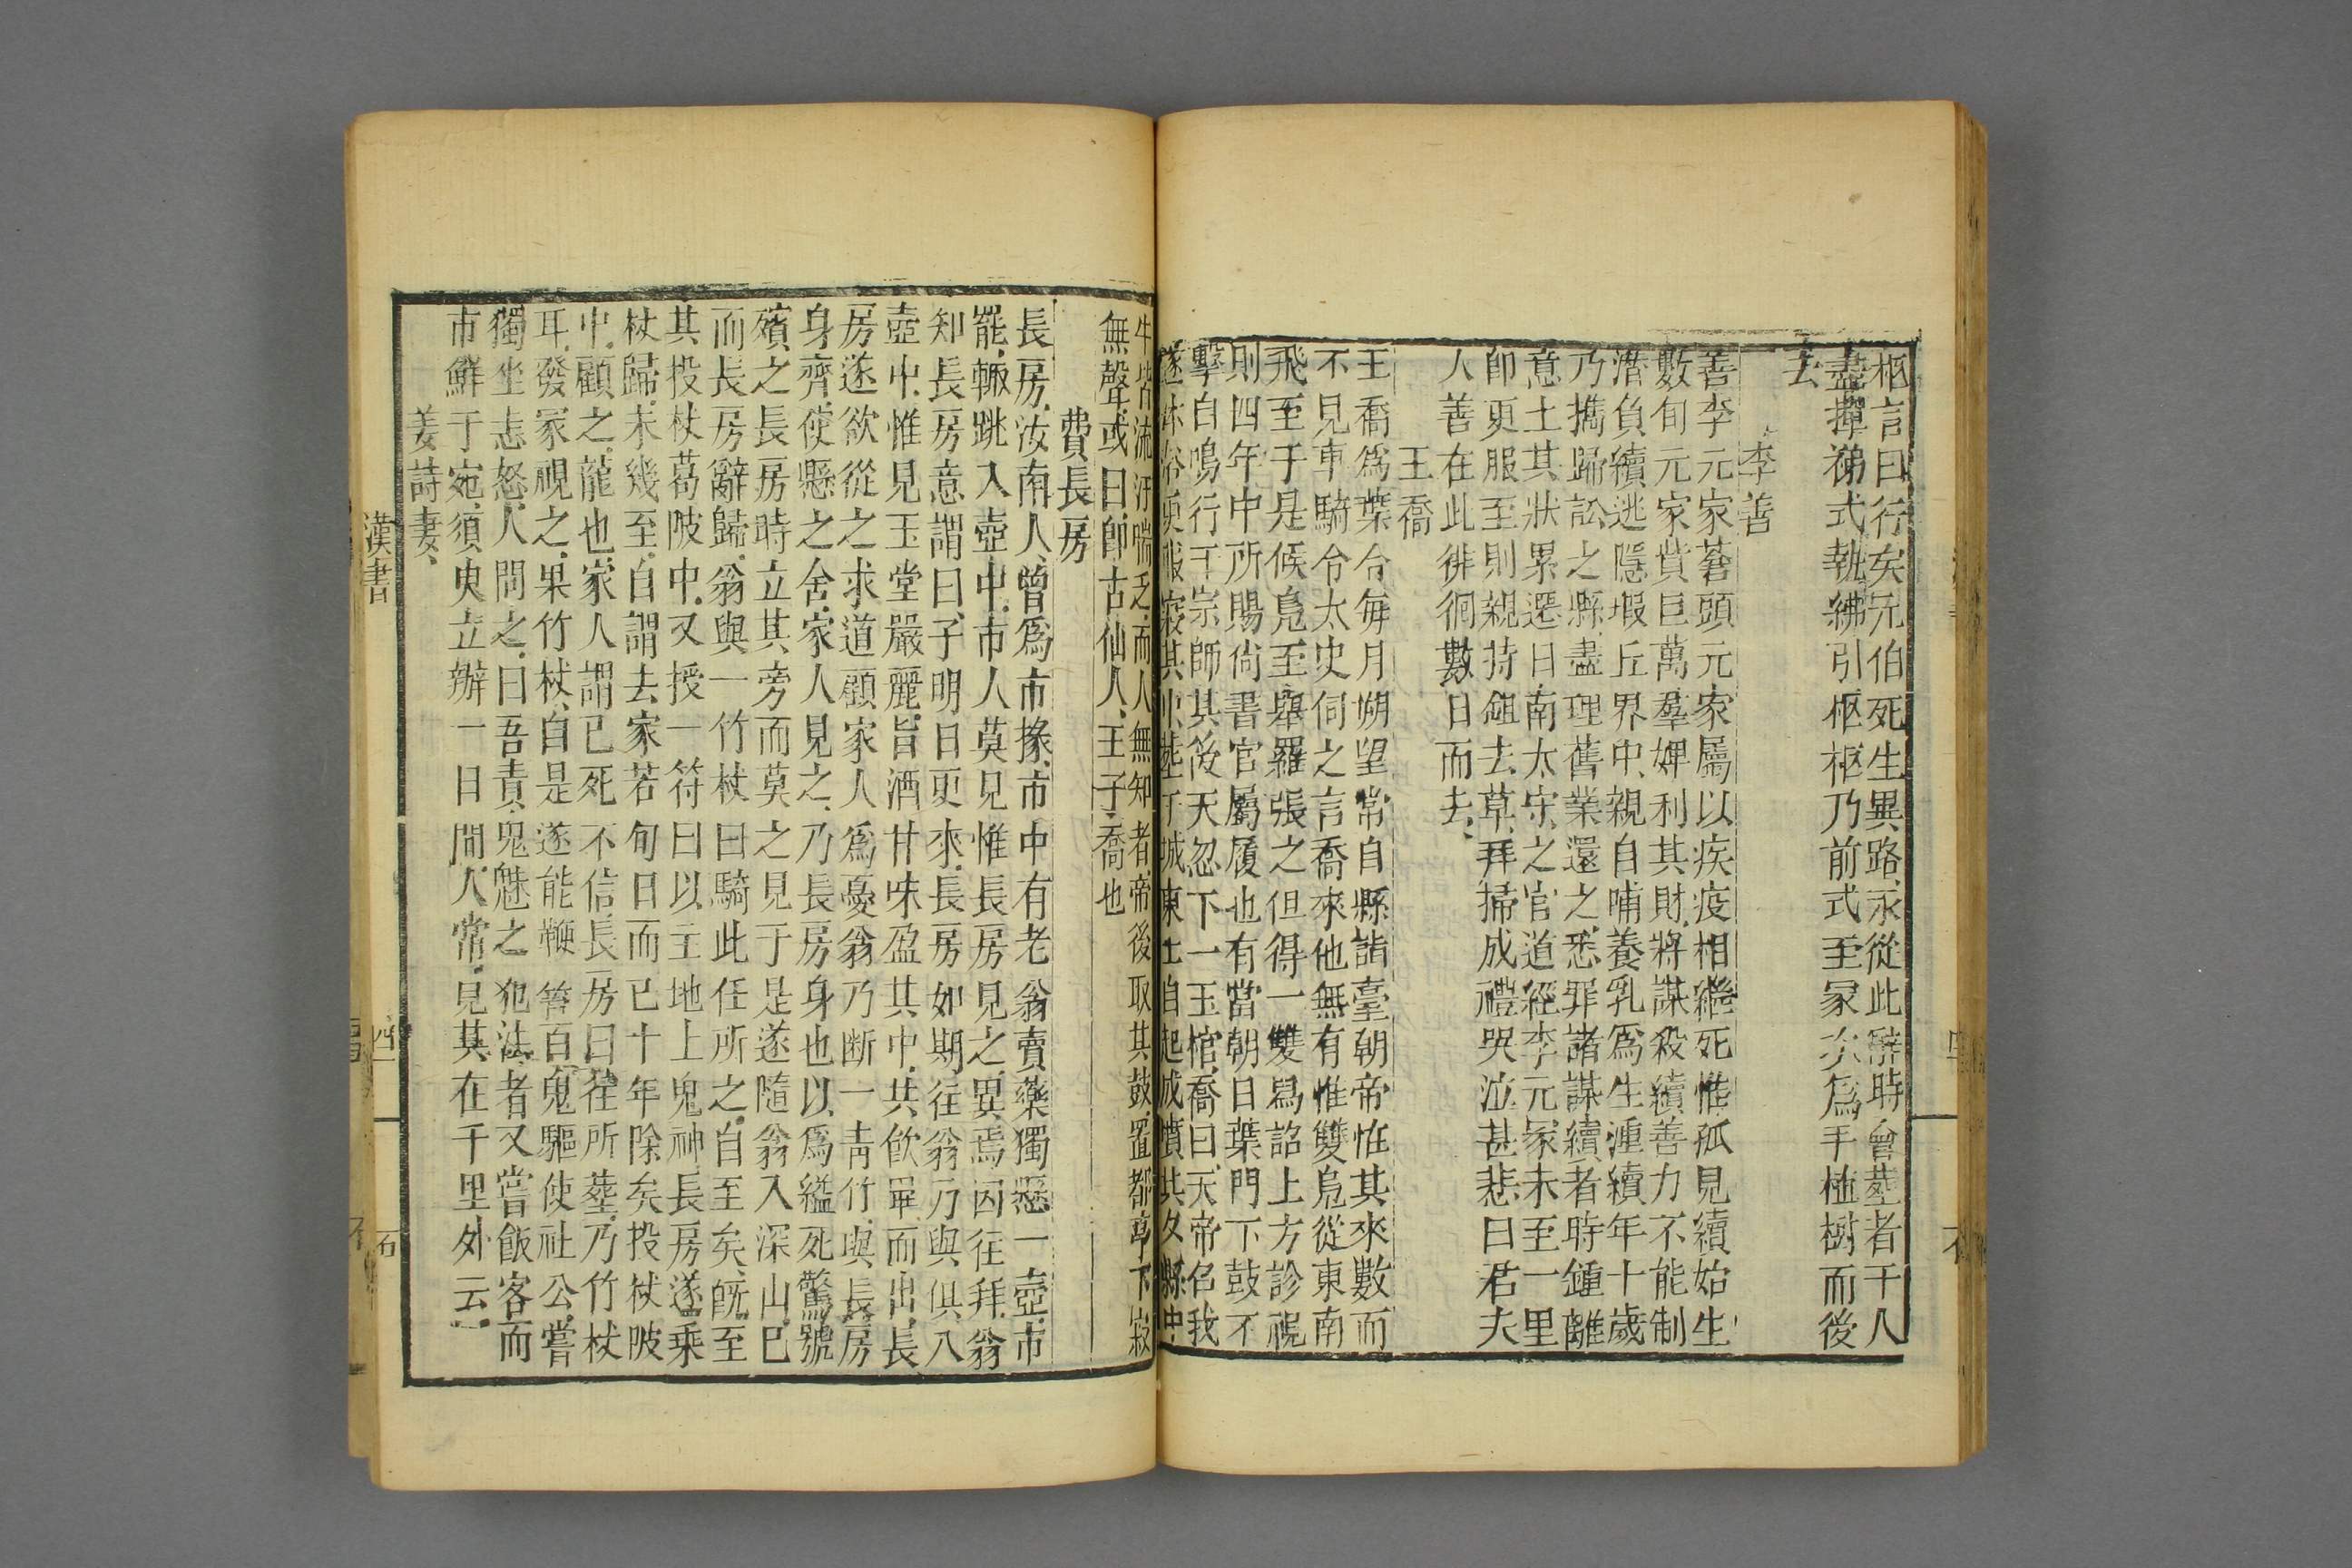 柩言曰行矣元伯死生異路永從此辭時會塟者千人
盡揮涕式執紼引柩柩乃前式至冢次爲手植樹而後
去
李善
善李元家蒼頭元家屬以疾疫相繼死惟孤見續始生
數旬元家貲巨萬羣婢利其財將謀殺續善力不能制
潜負續逃隱瑕丘界中親自哺養乳爲生湩續年十歲
乃擕歸訟之縣盡理舊業還之悉罪諸謀續者時鍾離
意上其狀累遷日南太守之官道經李元冢未至一里
卽更服至則親持鉏去草拜掃成禮哭泣甚悲曰君夫
人善在此徘徊數日而去
王喬
王喬爲葉令每月朔望常自縣詣臺朝帝恠其來數而
不見車騎令太史伺之言喬來他無有惟雙鳧從東南
飛至于是候鳧至舉羅張之但得一雙舄詔上方診視
則四年中所賜尙書官屬履也有當朝日葉門下鼓不
擊自鳴行于京師其後天忽下一玉棺喬曰天帝召我
遂沐浴更服寢其中塟于城東土自起成墳其夕縣中
牛皆流汗喘乏而人無知者帝後取其鼓置都亭下寂
無聲或曰卽古仙人王子喬也
費長房
長房汝南人曾爲市掾市中有老翁賣藥獨懸一壺市
罷輙跳入壺中市人莫見惟長房見之異焉因往拜翁
知長房意謂曰子明日更來長房如期往翁乃與俱入
壺中惟見玉堂嚴麗旨酒甘味盈其中共飮畢而出長
房遂欲從之求道顧家人爲憂翁乃断一靑竹與長房
身齊使懸之舍家人見之乃長房身也以爲縊死驚號
殯之長房時立其旁而莫之見于是遂隨翁入深山已
而長房辭歸翁與一竹杖曰騎此任所之自至矣旣至
其投杖葛陂中又授一符曰以主地上鬼神長房遂乘
杖歸未幾至自謂去家若旬日而已十年除矣投杖陂
中顧之龍也家人謂已死不信長房曰徃所塟乃竹杖
耳發冢視之果竹杖自是遂能鞭笞百鬼驅使社公嘗
獨坐恚怒人問之曰吾責鬼魅之犯法者又嘗飯客而
市鮮于宛須臾立辦一日間人常見其在千里外云
姜詩妻
漢書
四
石